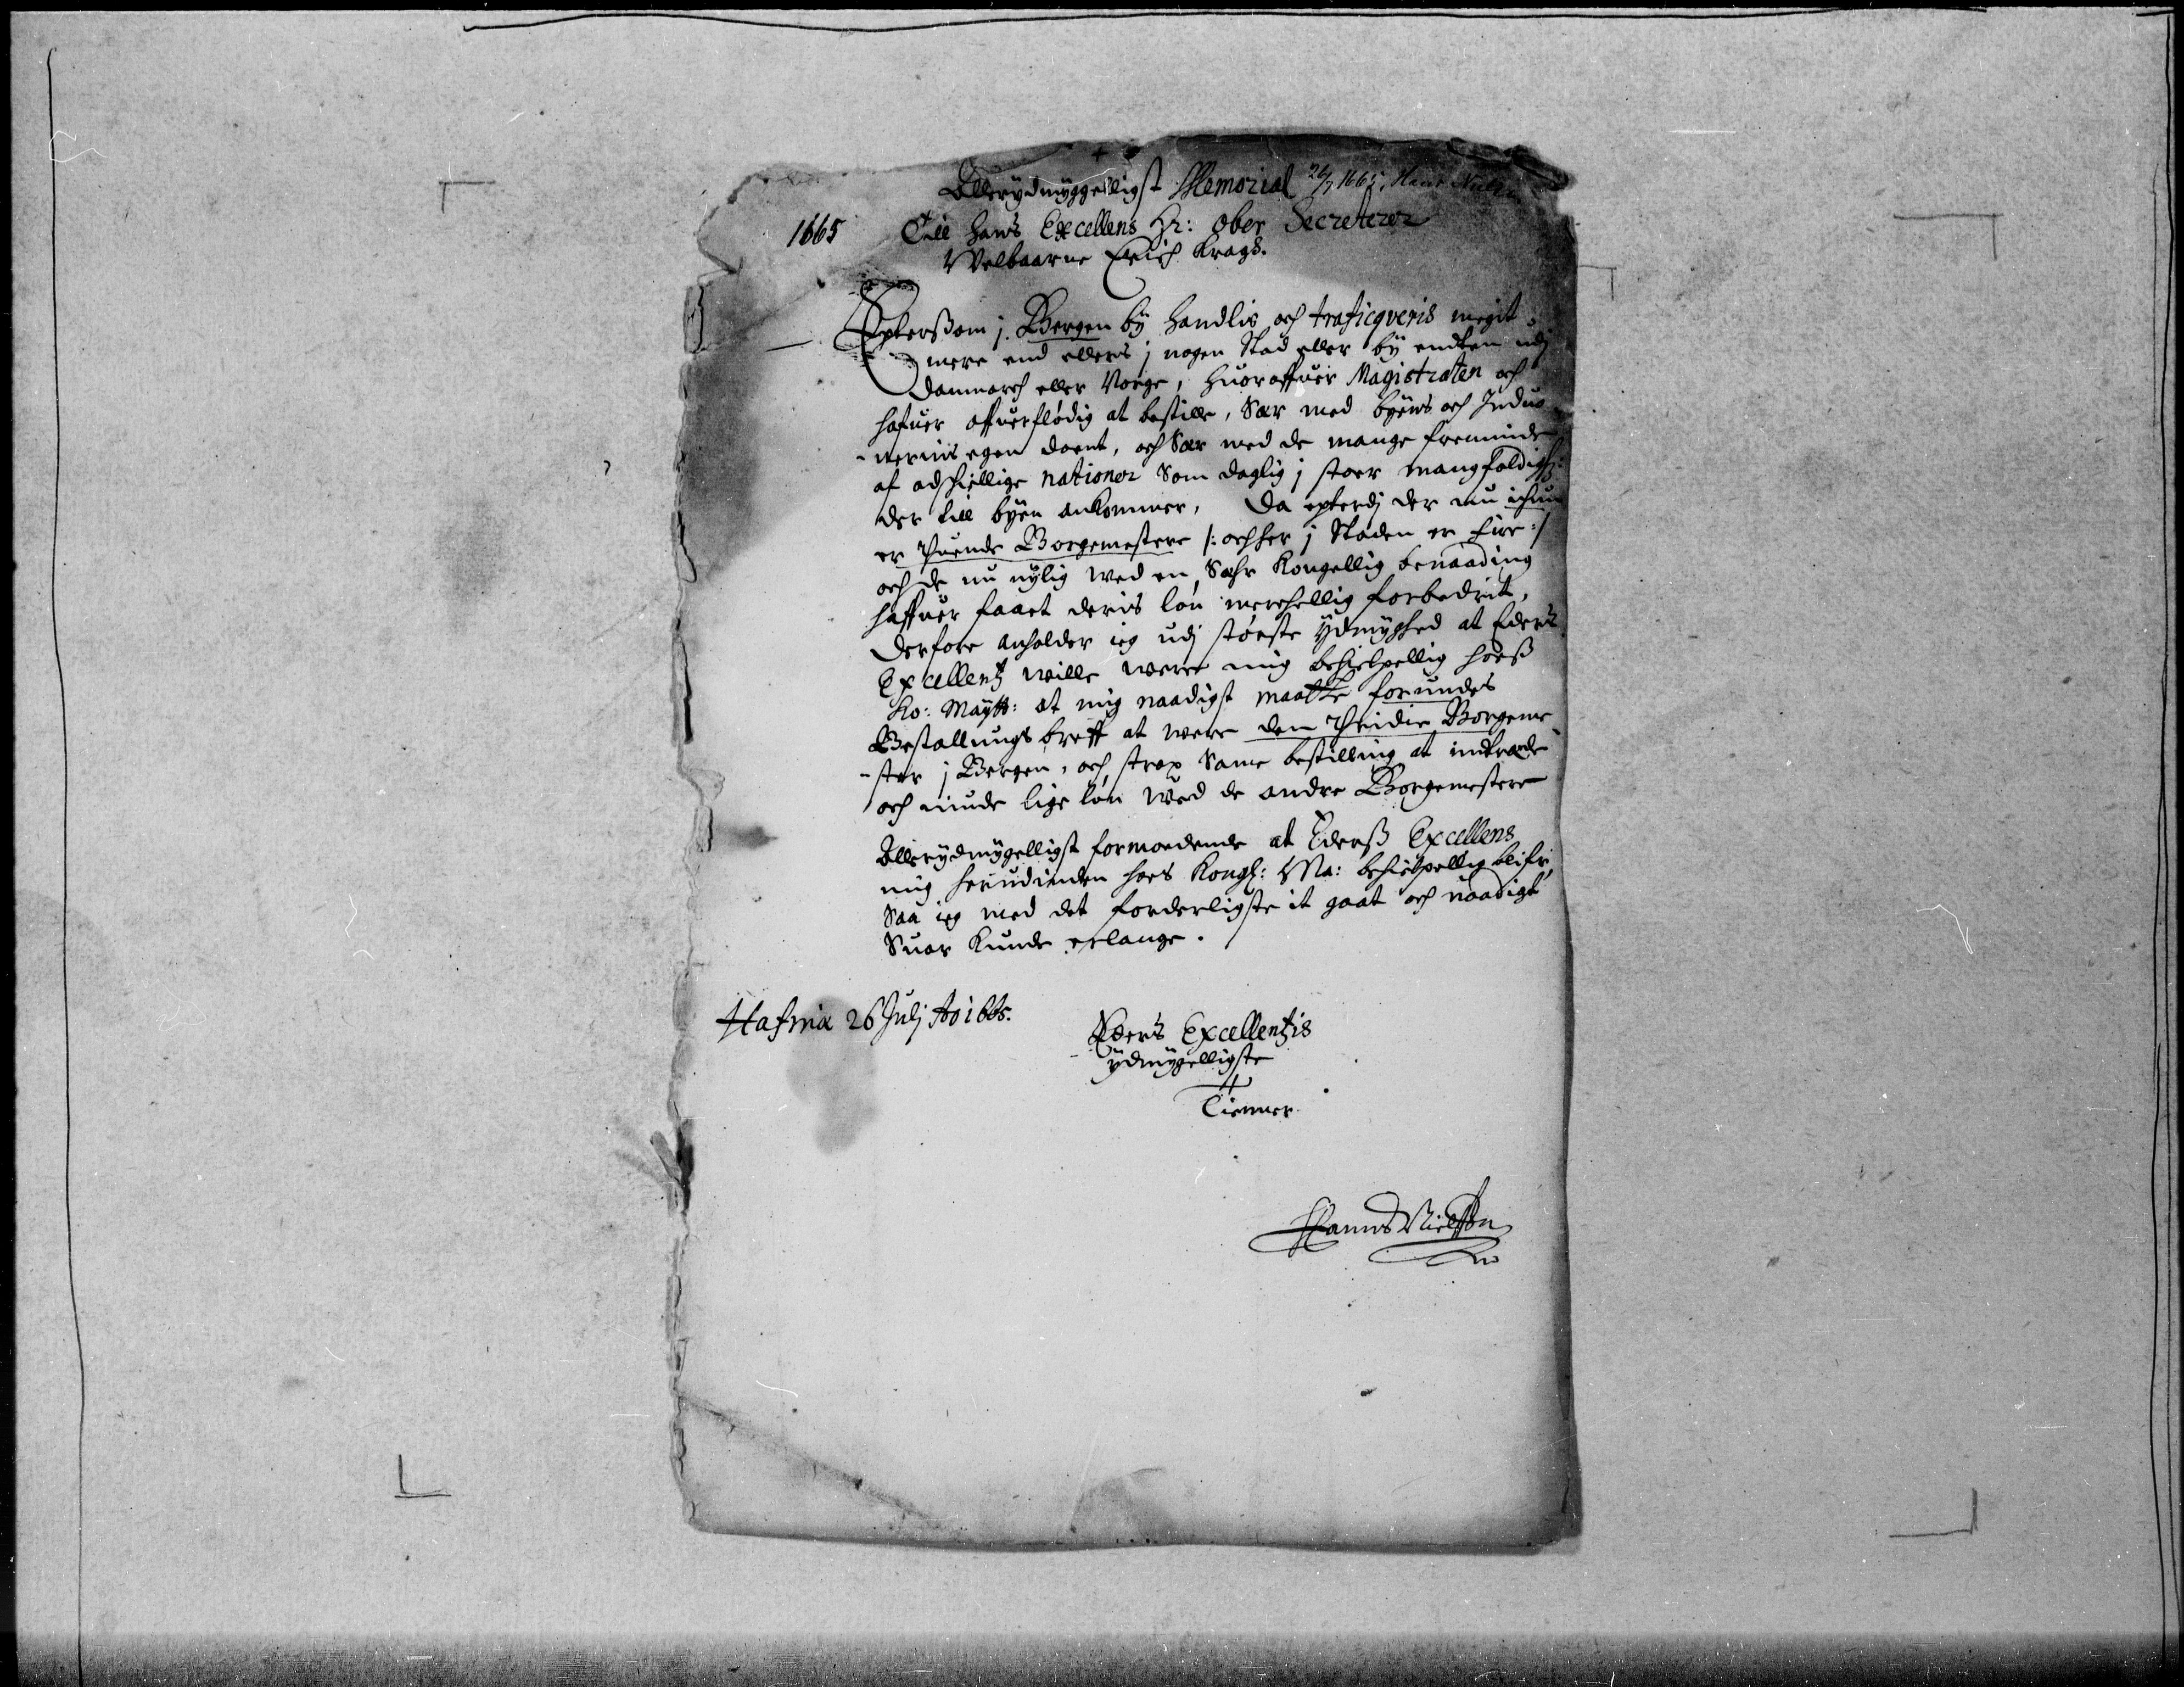 Allerydmyggeligst Memorial 26/7 1665, Hans Niels
1665
Till hans Excellens Hr: ober Secreterer
Velbaarne Erich Krags.
Epterßom j Bergen by handlis och traficqveris megit
mere end ellers j nogen Stad eller by endten udj
Danmarch eller Norge, huoraffuer Magistraten och
hafuer offuerflødig at bestille, saa med byens och Induo-
-nernis egen doent, och saa med de mange fremmide
af adschiellige nationer som daglig j stoer mangfoldigh:
der till byen ankommer, Da epterdj der nu ichun
er thuende Borgemestere /: och her j Staden er fire :/
och de nu nylig ved en sæhr Kongellig benaading
haffuer faaet deris løn merchellig forbedrit,
Derfore anholder ieg udj største Ydmyghed at Eders
Excellentz wille were mig behielpellig hoeß
Ko: Maytt: at mig naadigst maatte forundes
Bestallungs breff at were den thridie Borgeme
-ster j Bergen, och strax same bestilling at indtræde
och niude lige løn wed de andre Borgemestere
Allerydmygelligst formodende at Ederß Excellens
mig herudinden hoes Kongl: Ma: behielpellig blifr,
Saa ieg med det forderligste it gaat och naadigt
Suar kunde erlange.
Hafniæ 26 Julj Ao 1665.
Eders Excellentzis
ydmygelligste
Tienner
Hanns Nielßøn